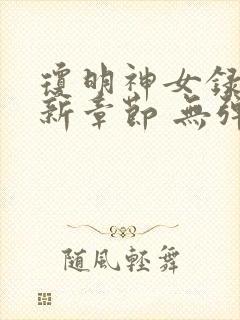 瓊明神女錄
新章節 無彈
隨風輕舞